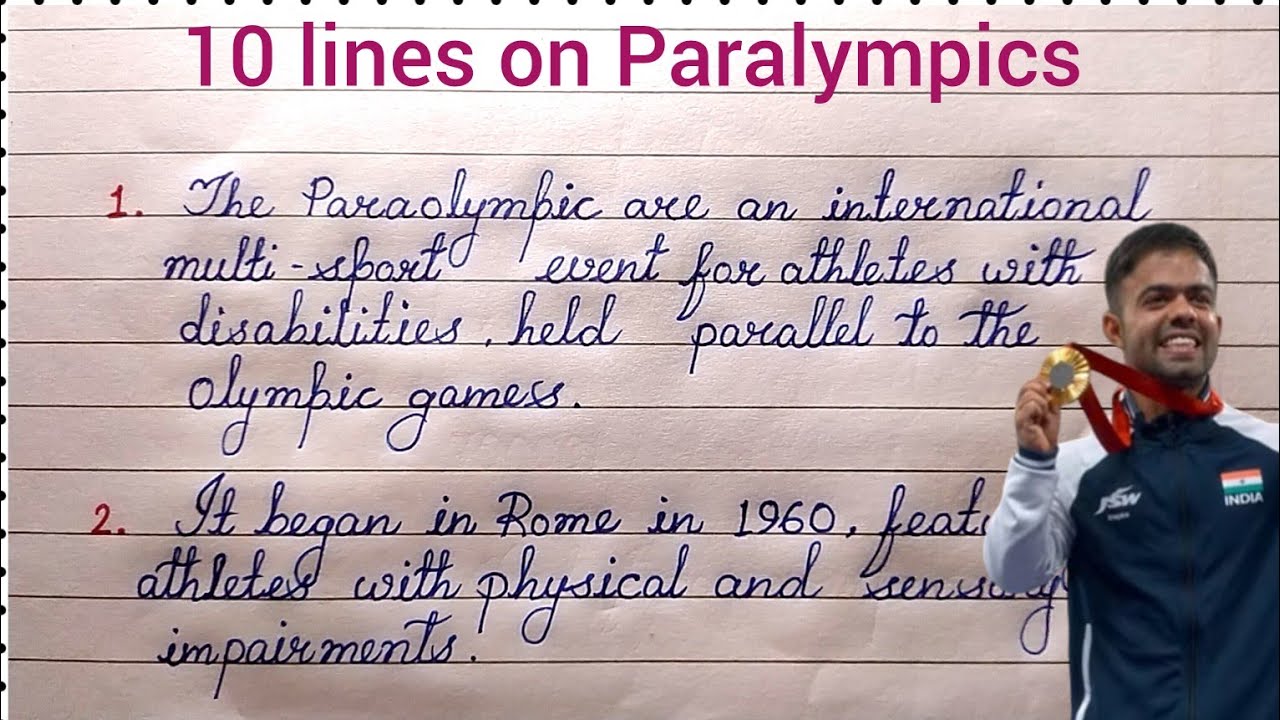 10 lines on Paralympics
1. The Paraolympic are an international
multi-sport event for athletes with
disabilities, held parallel to the
olympic gamess.
2. It began in Rome in 1960,
athletes with physical and sensory
impairments.
JSW
INDIA